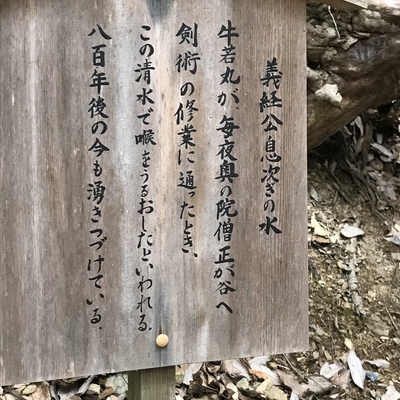 義経公息次ぎの水
牛若丸が、毎夜奥の院僧正が谷へ
剣術の修業に通ったとき、
この清水で喉をうるおしたといわれる。
八百年後の今も湧きつづけている。